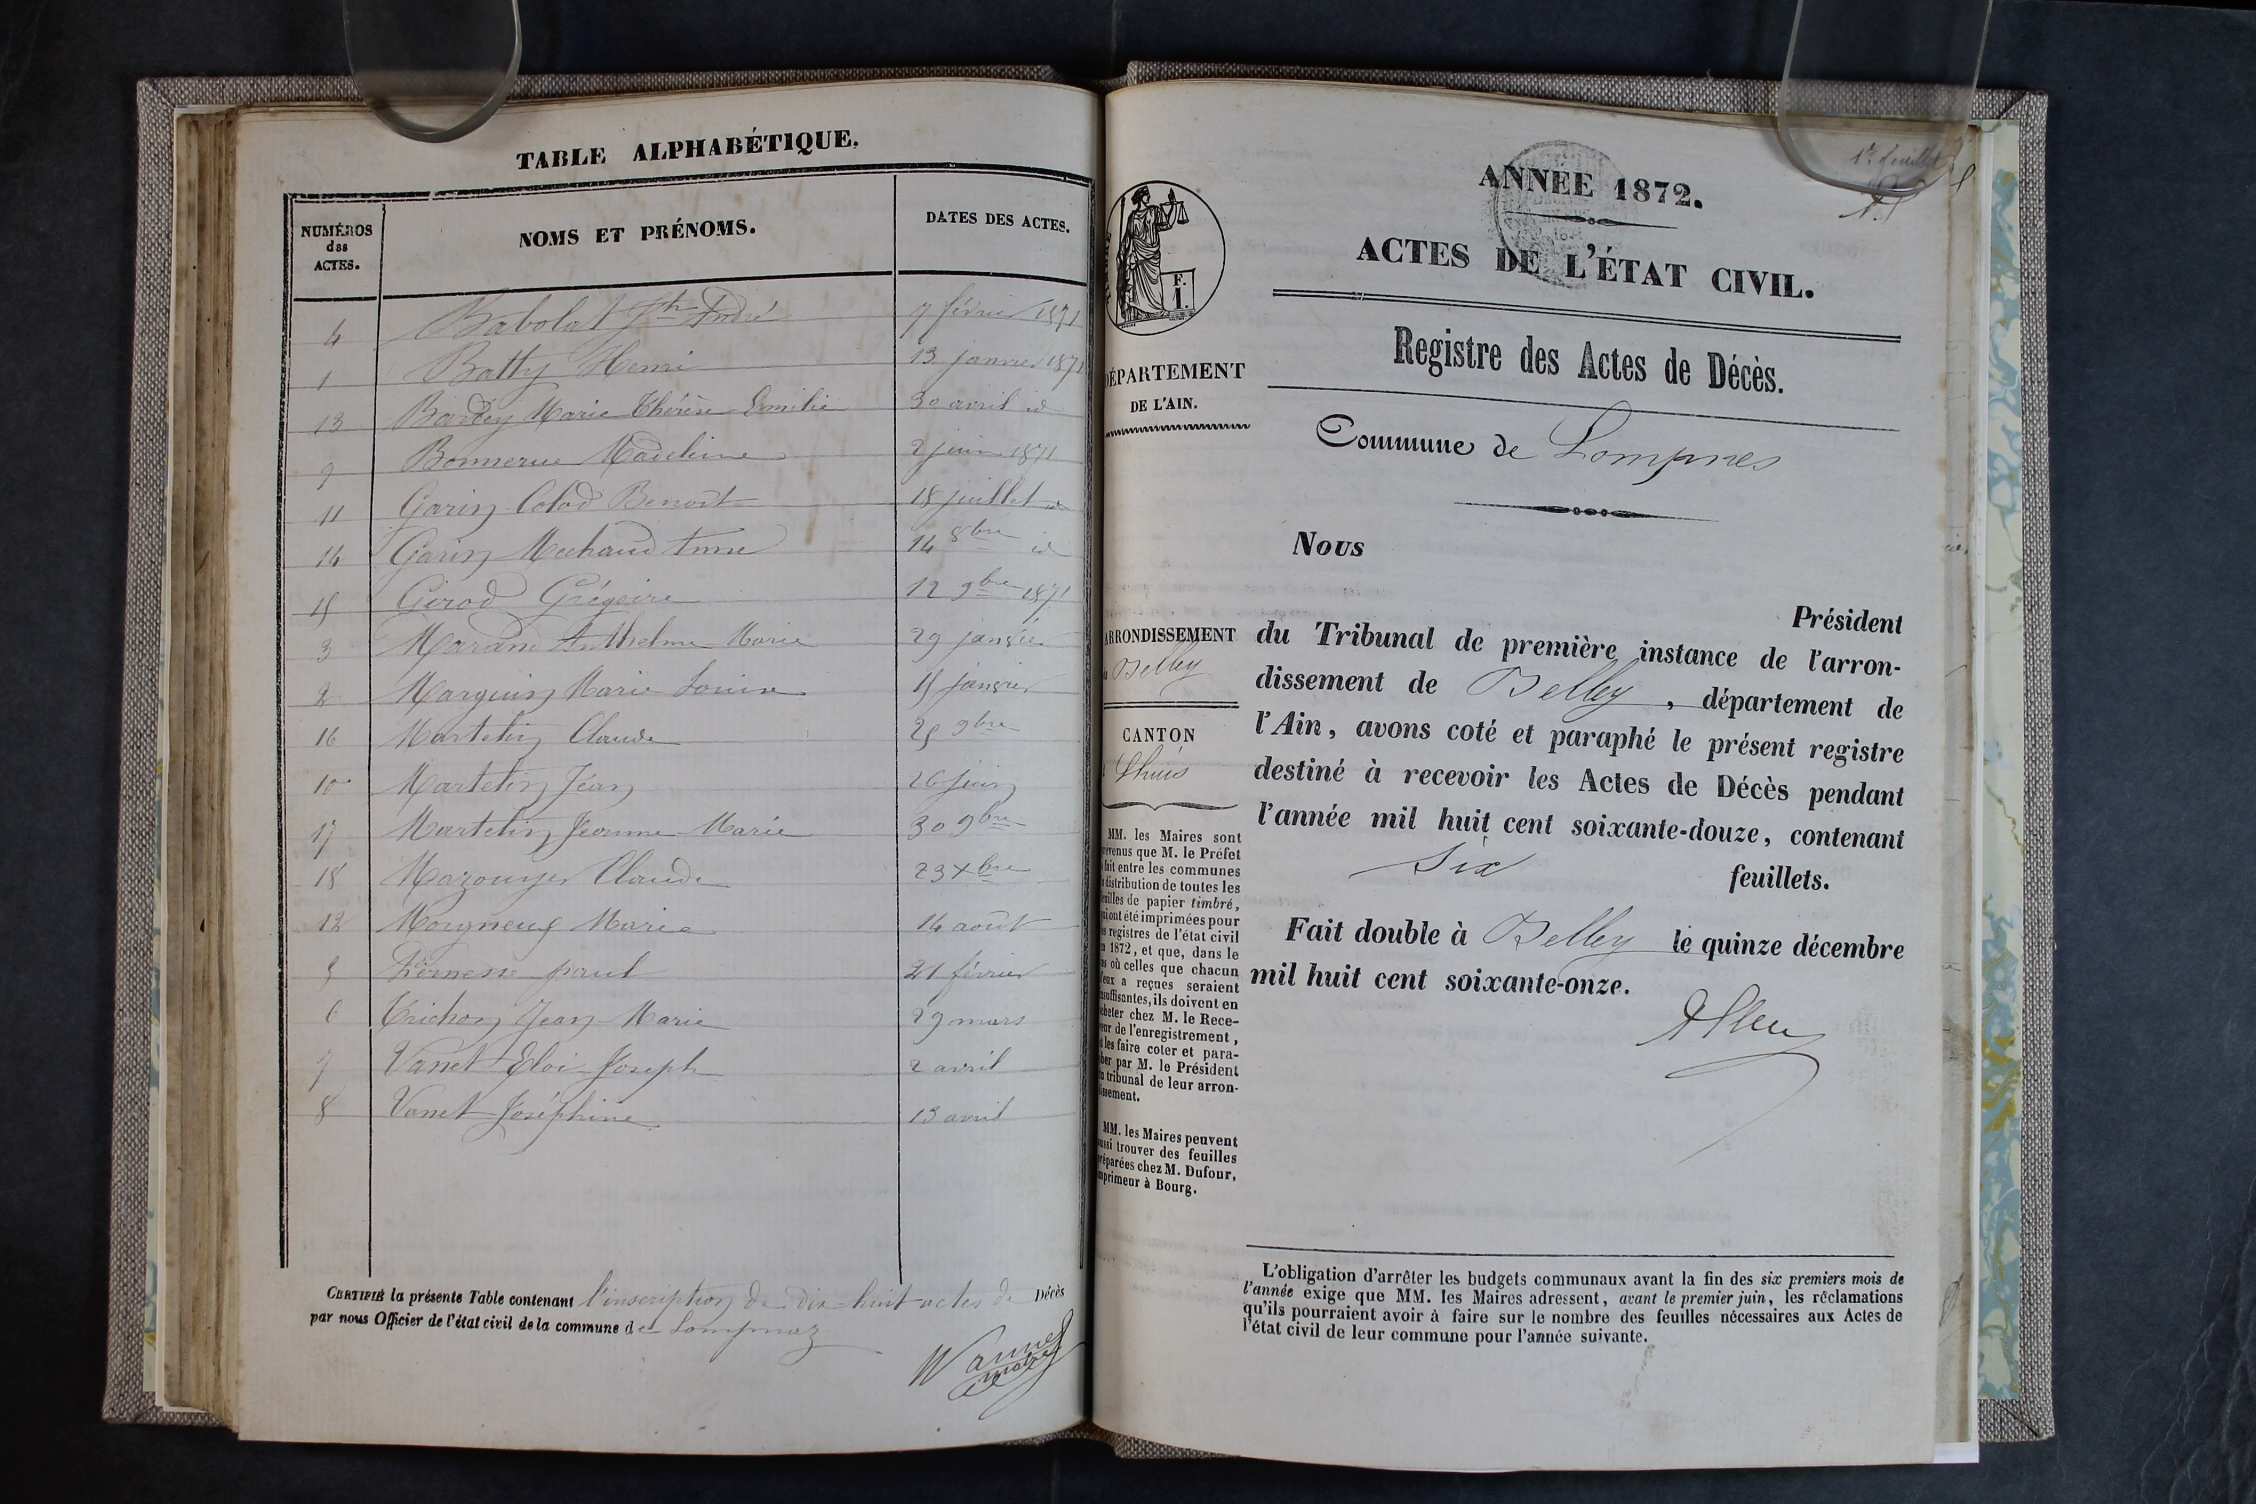 TABLE ALPHABÉTIQUE.
NUMÉROS
des
ACTES.
NOMS ET PRÉNOMS.
DATES DES ACTES.
4 Babolat Jth André 7 février 1871
1 Batty Henri 13 janvier 1871
13 Bardey Marie Thérèse Emilie 30 avril id
9 Bonnerue Madeleine 2 juin 1871
11 Garin Colod Benoit 18 juillet id
14 Garin Michaud 14 8bre id
15 Girod Grégoire 12 9bre 1871
3 Marand Anthelme Marie 29 janvier
2 Marguin Marie Louise 15 janvier
16 Martelin Claude 25 9bre
10 Martelin Jean 26 juin
17 Martelin Jeanne Marie 30 9bre
18 Mazouyer Claude 23 Xbre
12 Moigneux Marie 14 août
5 paul 21 février
6 Trichon Jean Marie 29 mars
7 Vanet Eloi Joseph 2 avril
8 Vanet Joséphine 13 avril
CERTIFIÉ la présente Table contenant l'inscription de dix-huit actes de Décès
par nous Officier de l'état civil de la commune de Lompnaz
1er feuillet
ANNÉE 1872.
ACTES DE L'ÉTAT CIVIL.
Registre des Actes de Décès.
F.
1.
DÉPARTEMENT
DE L'AIN.
Commune de Lompnes
Nous
Président
ARRONDISSEMENT
Belley
CANTON
Lhuis
du Tribunal de première instance de l'arron-
dissement de Belley, département de
l'Ain, avons coté et paraphé le présent registre
destiné à recevoir les Actes de Décès pendant
l'année mil huit cent soixante-douze, contenant
six feuillets.
Fait double à Belley le quinze décembre
mil huit cent soixante-onze.
MM. les Maires sont
prévenus que M. le Préfet
fait entre les communes
distribution de toutes les
feuilles de papier timbré,
qui ont été imprimées pour
les registres de l'état civil
1872, et que, dans le
cas où celles que chacun
d'eux a reçues seraient
insuffisantes, ils doivent en
acheter chez M. le Rece-
veur de l'enregistrement,
et les faire coter et para-
pher par M. le Président
du tribunal de leur arron-
dissement.
MM. les Maires peuvent
aussi trouver des feuilles
préparées chez M. Dufour,
imprimeur à Bourg.
L'obligation d'arrêter les budgets communaux avant la fin des six premiers mois de
l'année exige que MM. les Maires adressent, avant le premier juin, les réclamations
qu'ils pourraient avoir à faire sur le nombre des feuilles nécessaires aux Actes de
l'état civil de leur commune pour l'année suivante.